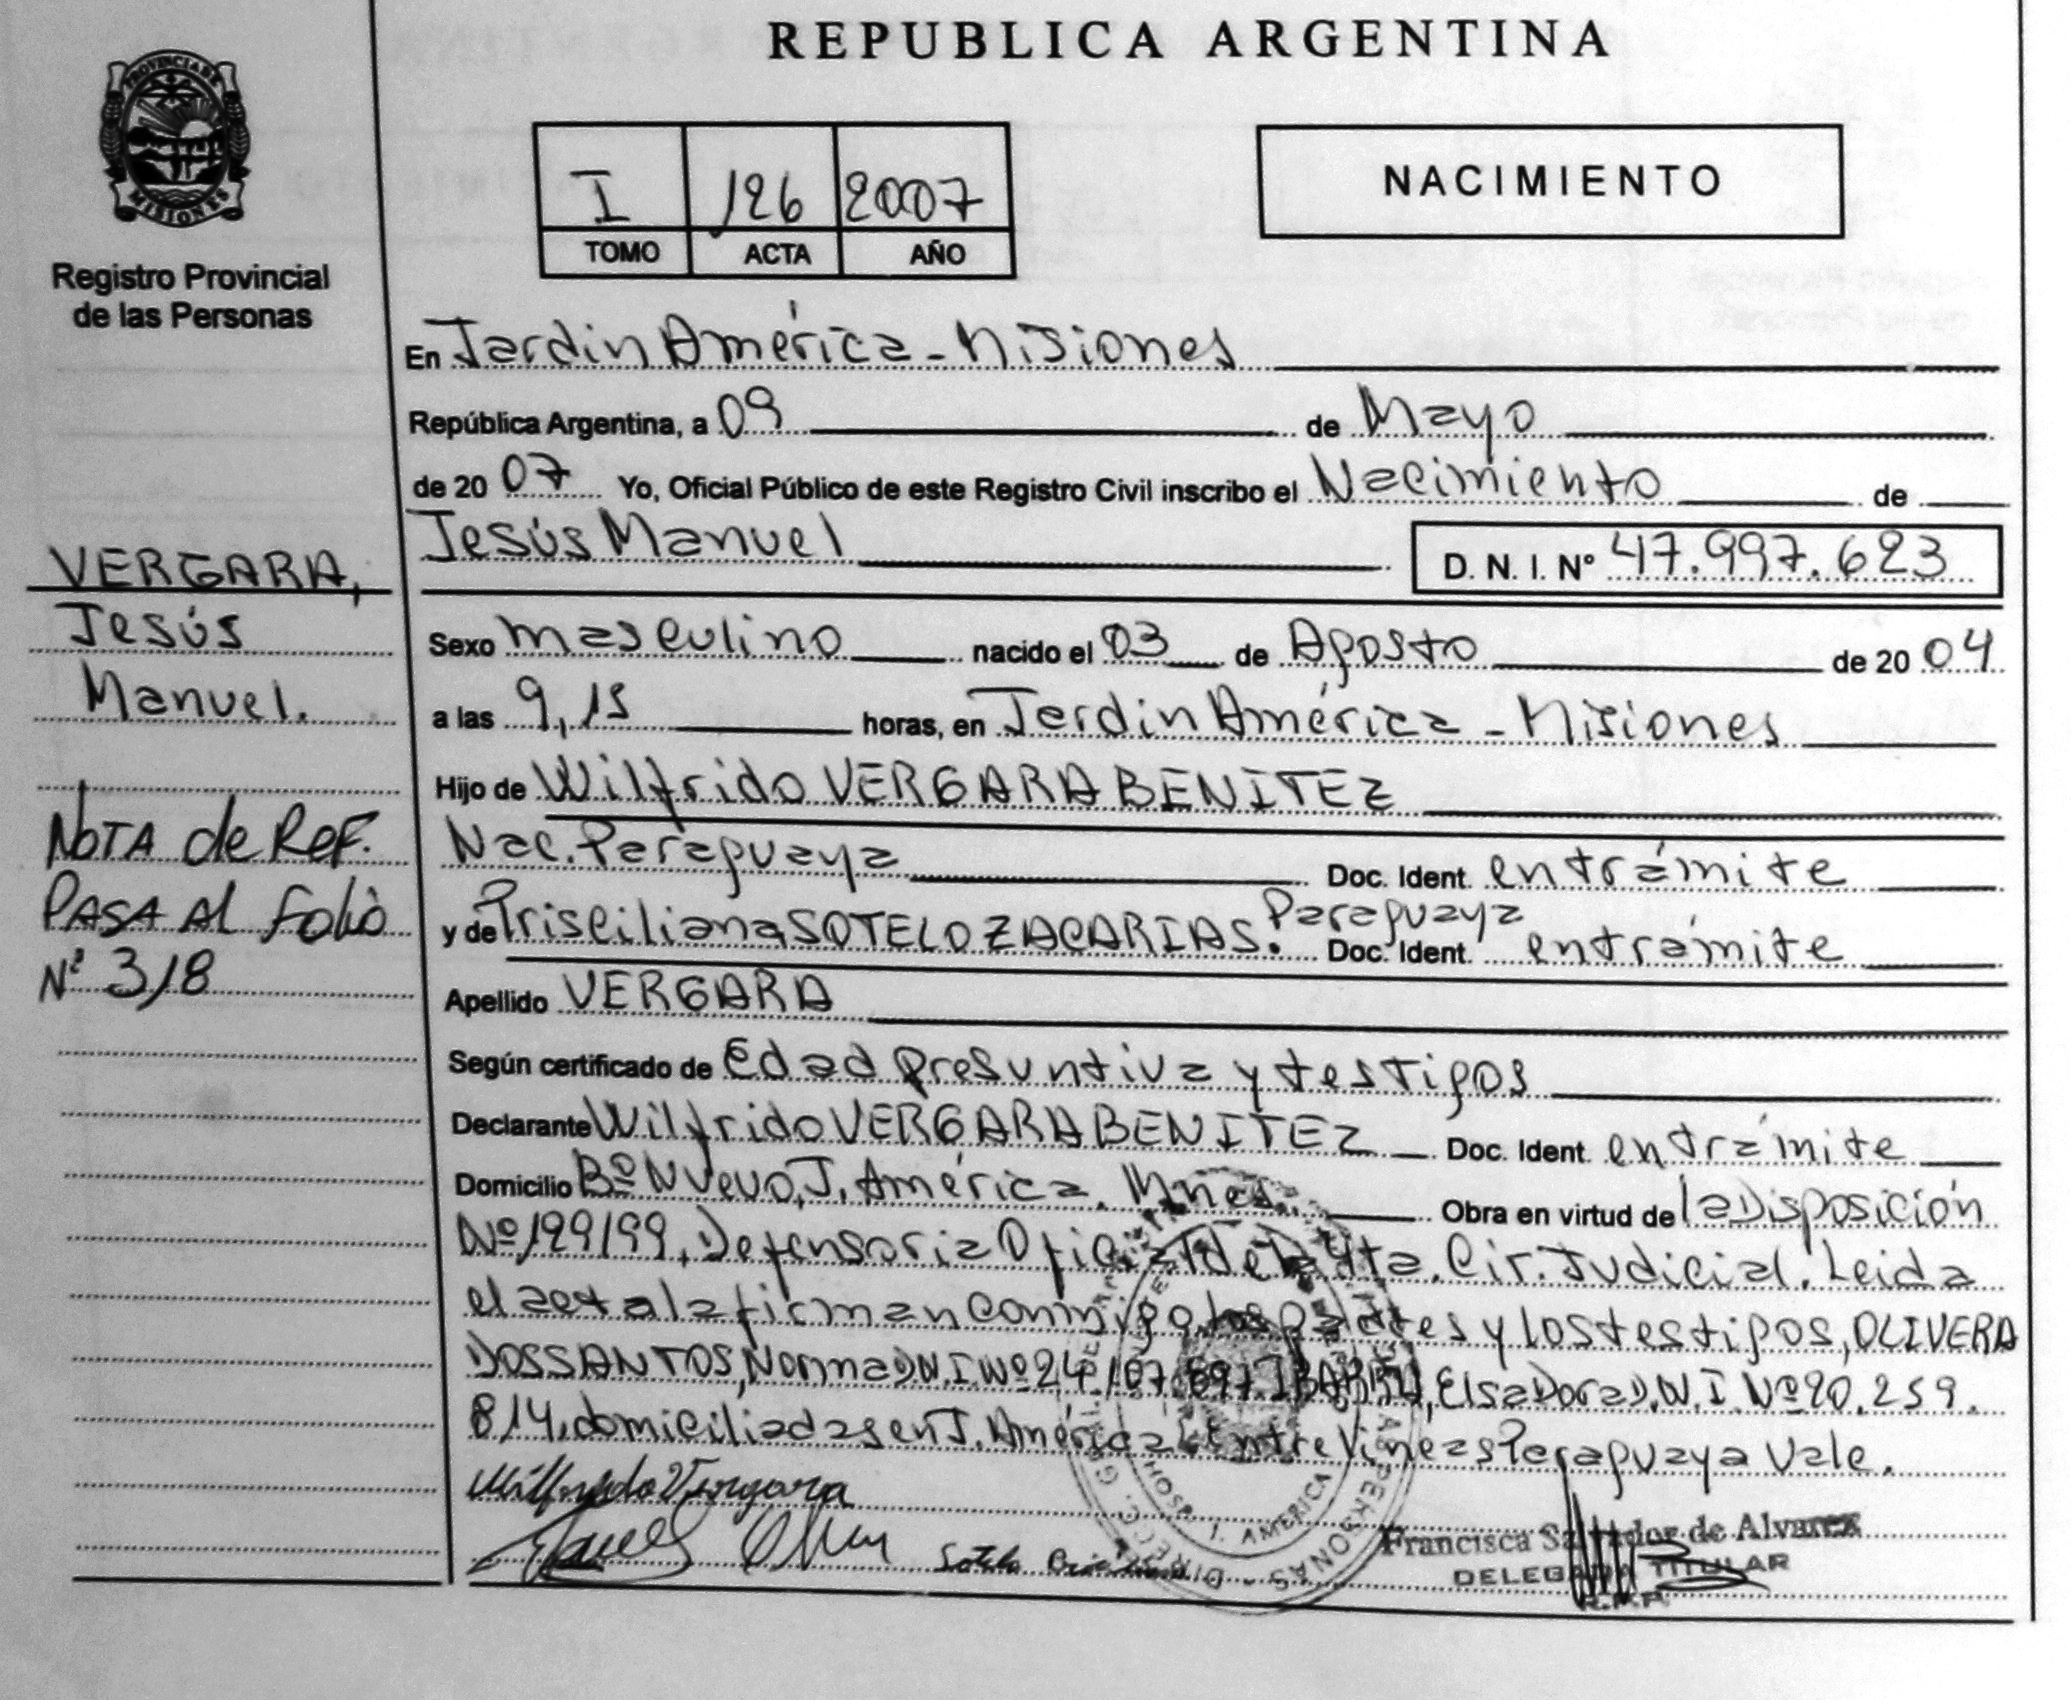 REPUBLICA ARGENTINA
PROVINCIA DE
MISIONES
Registro Provincial
de las Personas
I 126 2007
TOMO ACTA AÑO
NACIMIENTO
En Jardin América - Misiones
República Argentina, a 09 de Mayo
de 20 07 Yo, Oficial Público de este Registro Civil inscribo el Nacimiento de
Jesús Manuel D. N. I. Nº 47.997.623
VERGARA,
Jesús
Manuel.
NOTA de REF.
PASA Al Folio
Nº 318
Sexo masculino nacido el 03 de Agosto de 20 04
a las 9,15 horas, en Jardin América - Misiones
Hijo de Wilfrido VERGARA BENITEZ
Nac. Paraguaya Doc. Ident. en trámite
y de Prisciliana SOTELO ZACARIAS. Paraguaya Doc. Ident. en trámite
Apellido VERGARA
Según certificado de Edad presuntiva y testigos
Declarante Wilfrido VERGARA BENITEZ Doc. Ident. en trámite
Domicilio Bº Nuevo, J. América, Mnes. Obra en virtud de la Disposición
Nº 199/99, Defensoria Oficial de la 4ta. Cir. Judicial. Leida
el acta la firman conmigo los padres y los testigos, OLIVERA
DOSSANTOS, Norma D.N.I. Nº 24 Elsa Dora D.N.I. Nº 20.259.
814, domiciliadas en J. América. Entre lineas Paraguaya Vale.
Wilfrido Vergara
Sotelo
Francisca Salvador de Alvarez
DELEGADA TITULAR
R.P.P.
J. AMERICA
PERSONAS - DIRECC. GRAL. DE